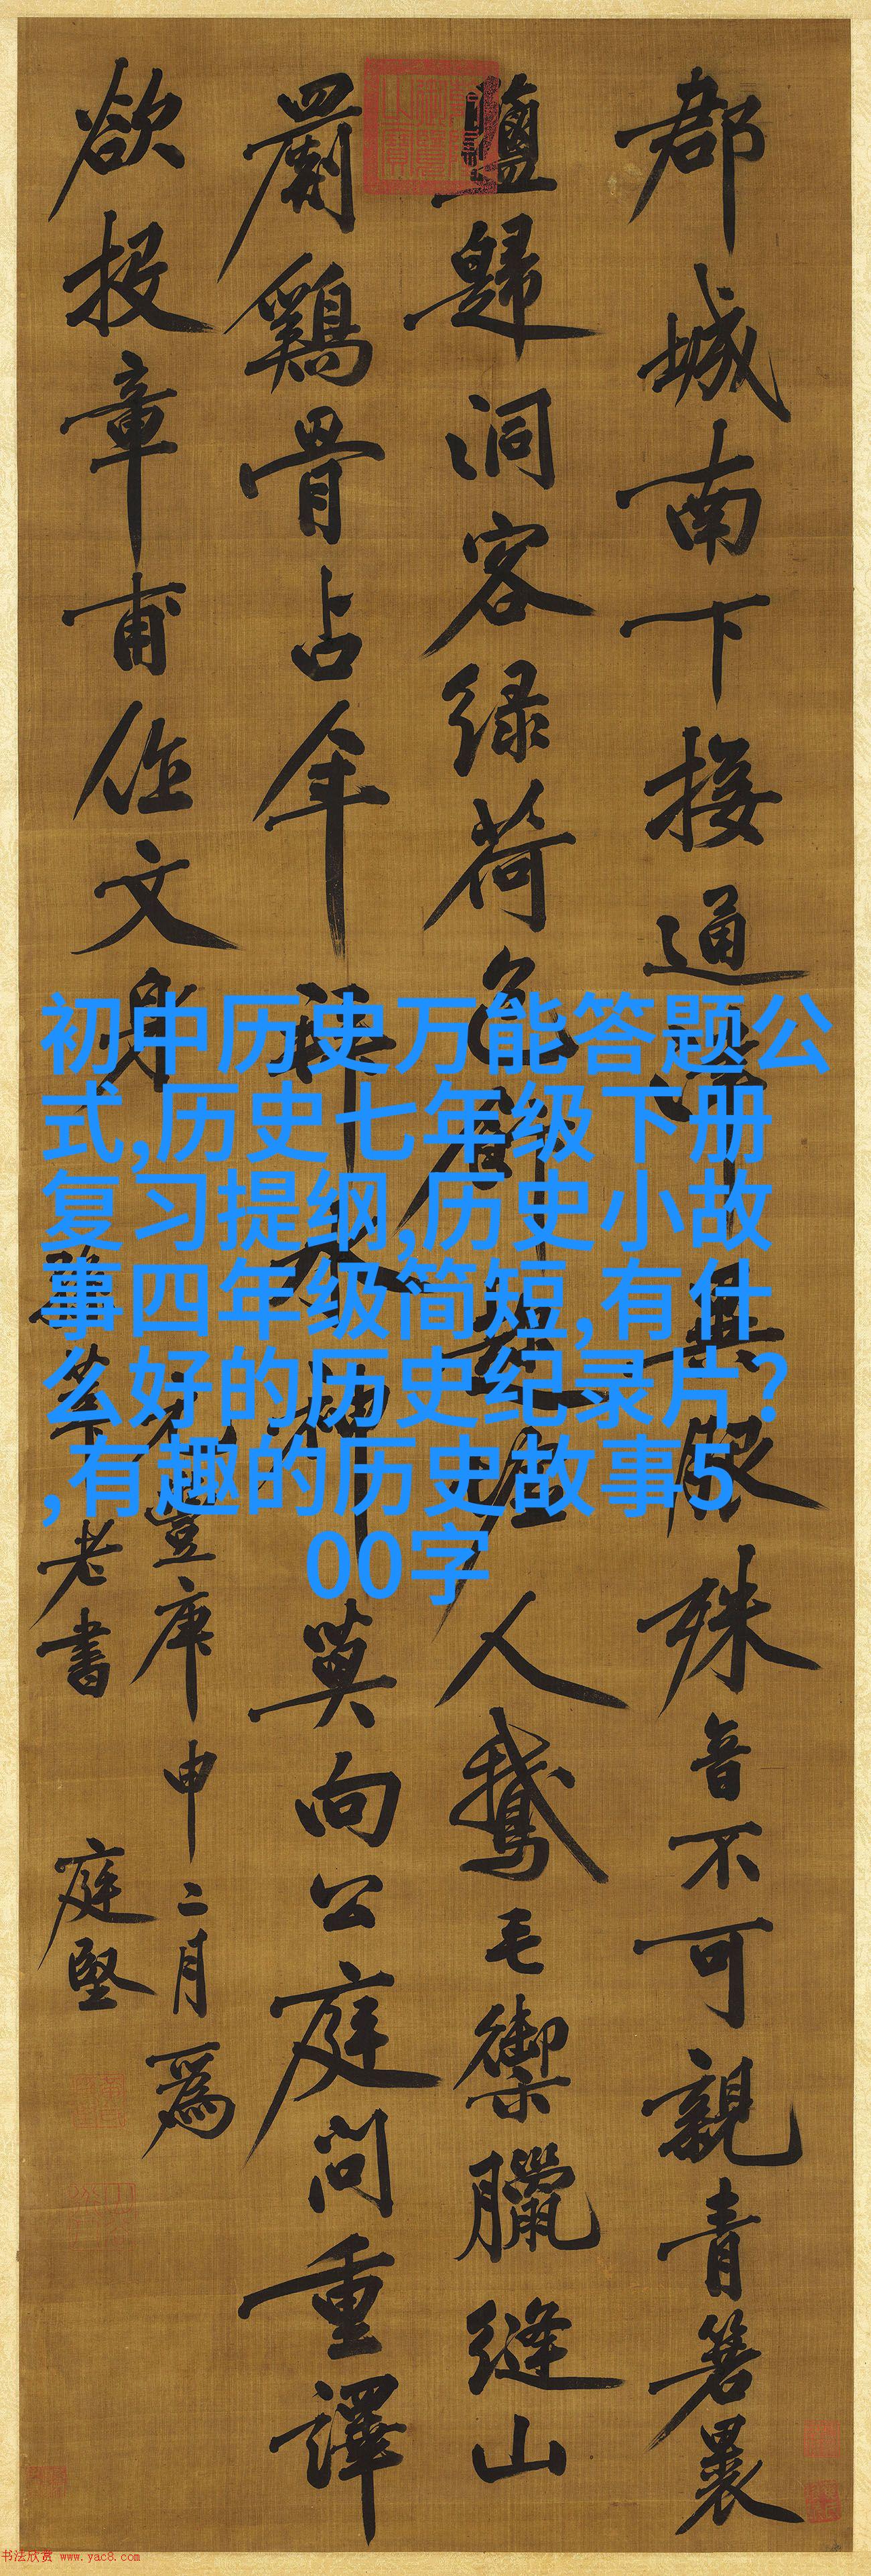 郡城南下接通津異服殊音不可親青箬裹
鹽歸洞客绿荷包飯趁虛人鵝毛御臘縫山
罽鷄骨占年拜水神莫向公庭問重譯
欲投章甫作文身
豐庚申二月爲
老書庭堅
初中历史万能答题公
式,历史七年级下册
复习提纲,历史小故
事四年级简短,有什
么好的历史纪录片?
,有趣的历史故事5
00字
书法欣赏 www.yac8.com